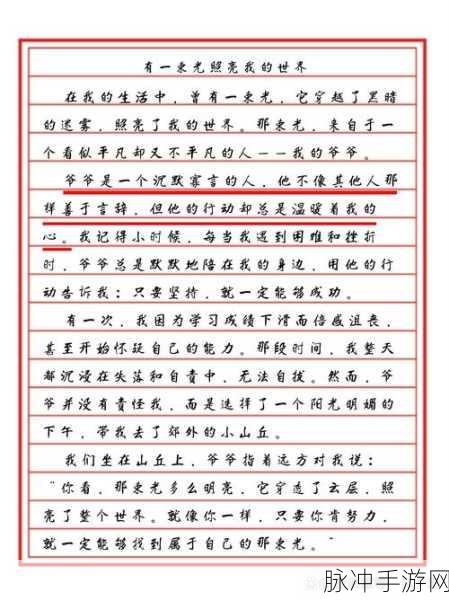 有一束光照亮我的世界
在我的生活中，曾有一束光，它穿越了黑暗
的迷雾，照亮了我的世界。那束光，来自于一
个看似平凡却又不平凡的人——我的爷爷。
爷爷是一个沉默寡言的人，他不像其他人那
样善于言辞，但他的行动却总是温暖着我的
心。我记得小时候，每当我遇到困难和挫折
时，爷爷总是默默地陪在我的身边，用他的行
动告诉我：只要坚持，就一定能够成功。
有一次，我因为学习成绩下滑而倍感沮丧，
甚至开始怀疑自己的能力。那段时间，我整天
都沉浸在失落和自责中，无法自拔。然而，爷
爷并没有责怪我，而是选择了一个阳光明媚的
下午，带我去了郊外的小山丘。
我们坐在山丘上，爷爷指着远方对我说：
“你看，那束光多么明亮，它穿透了云层，照
亮了整个世界。就像你一样，只要你肯努力，
就一定能够找到属于自己的那束光。”
脉冲手游网